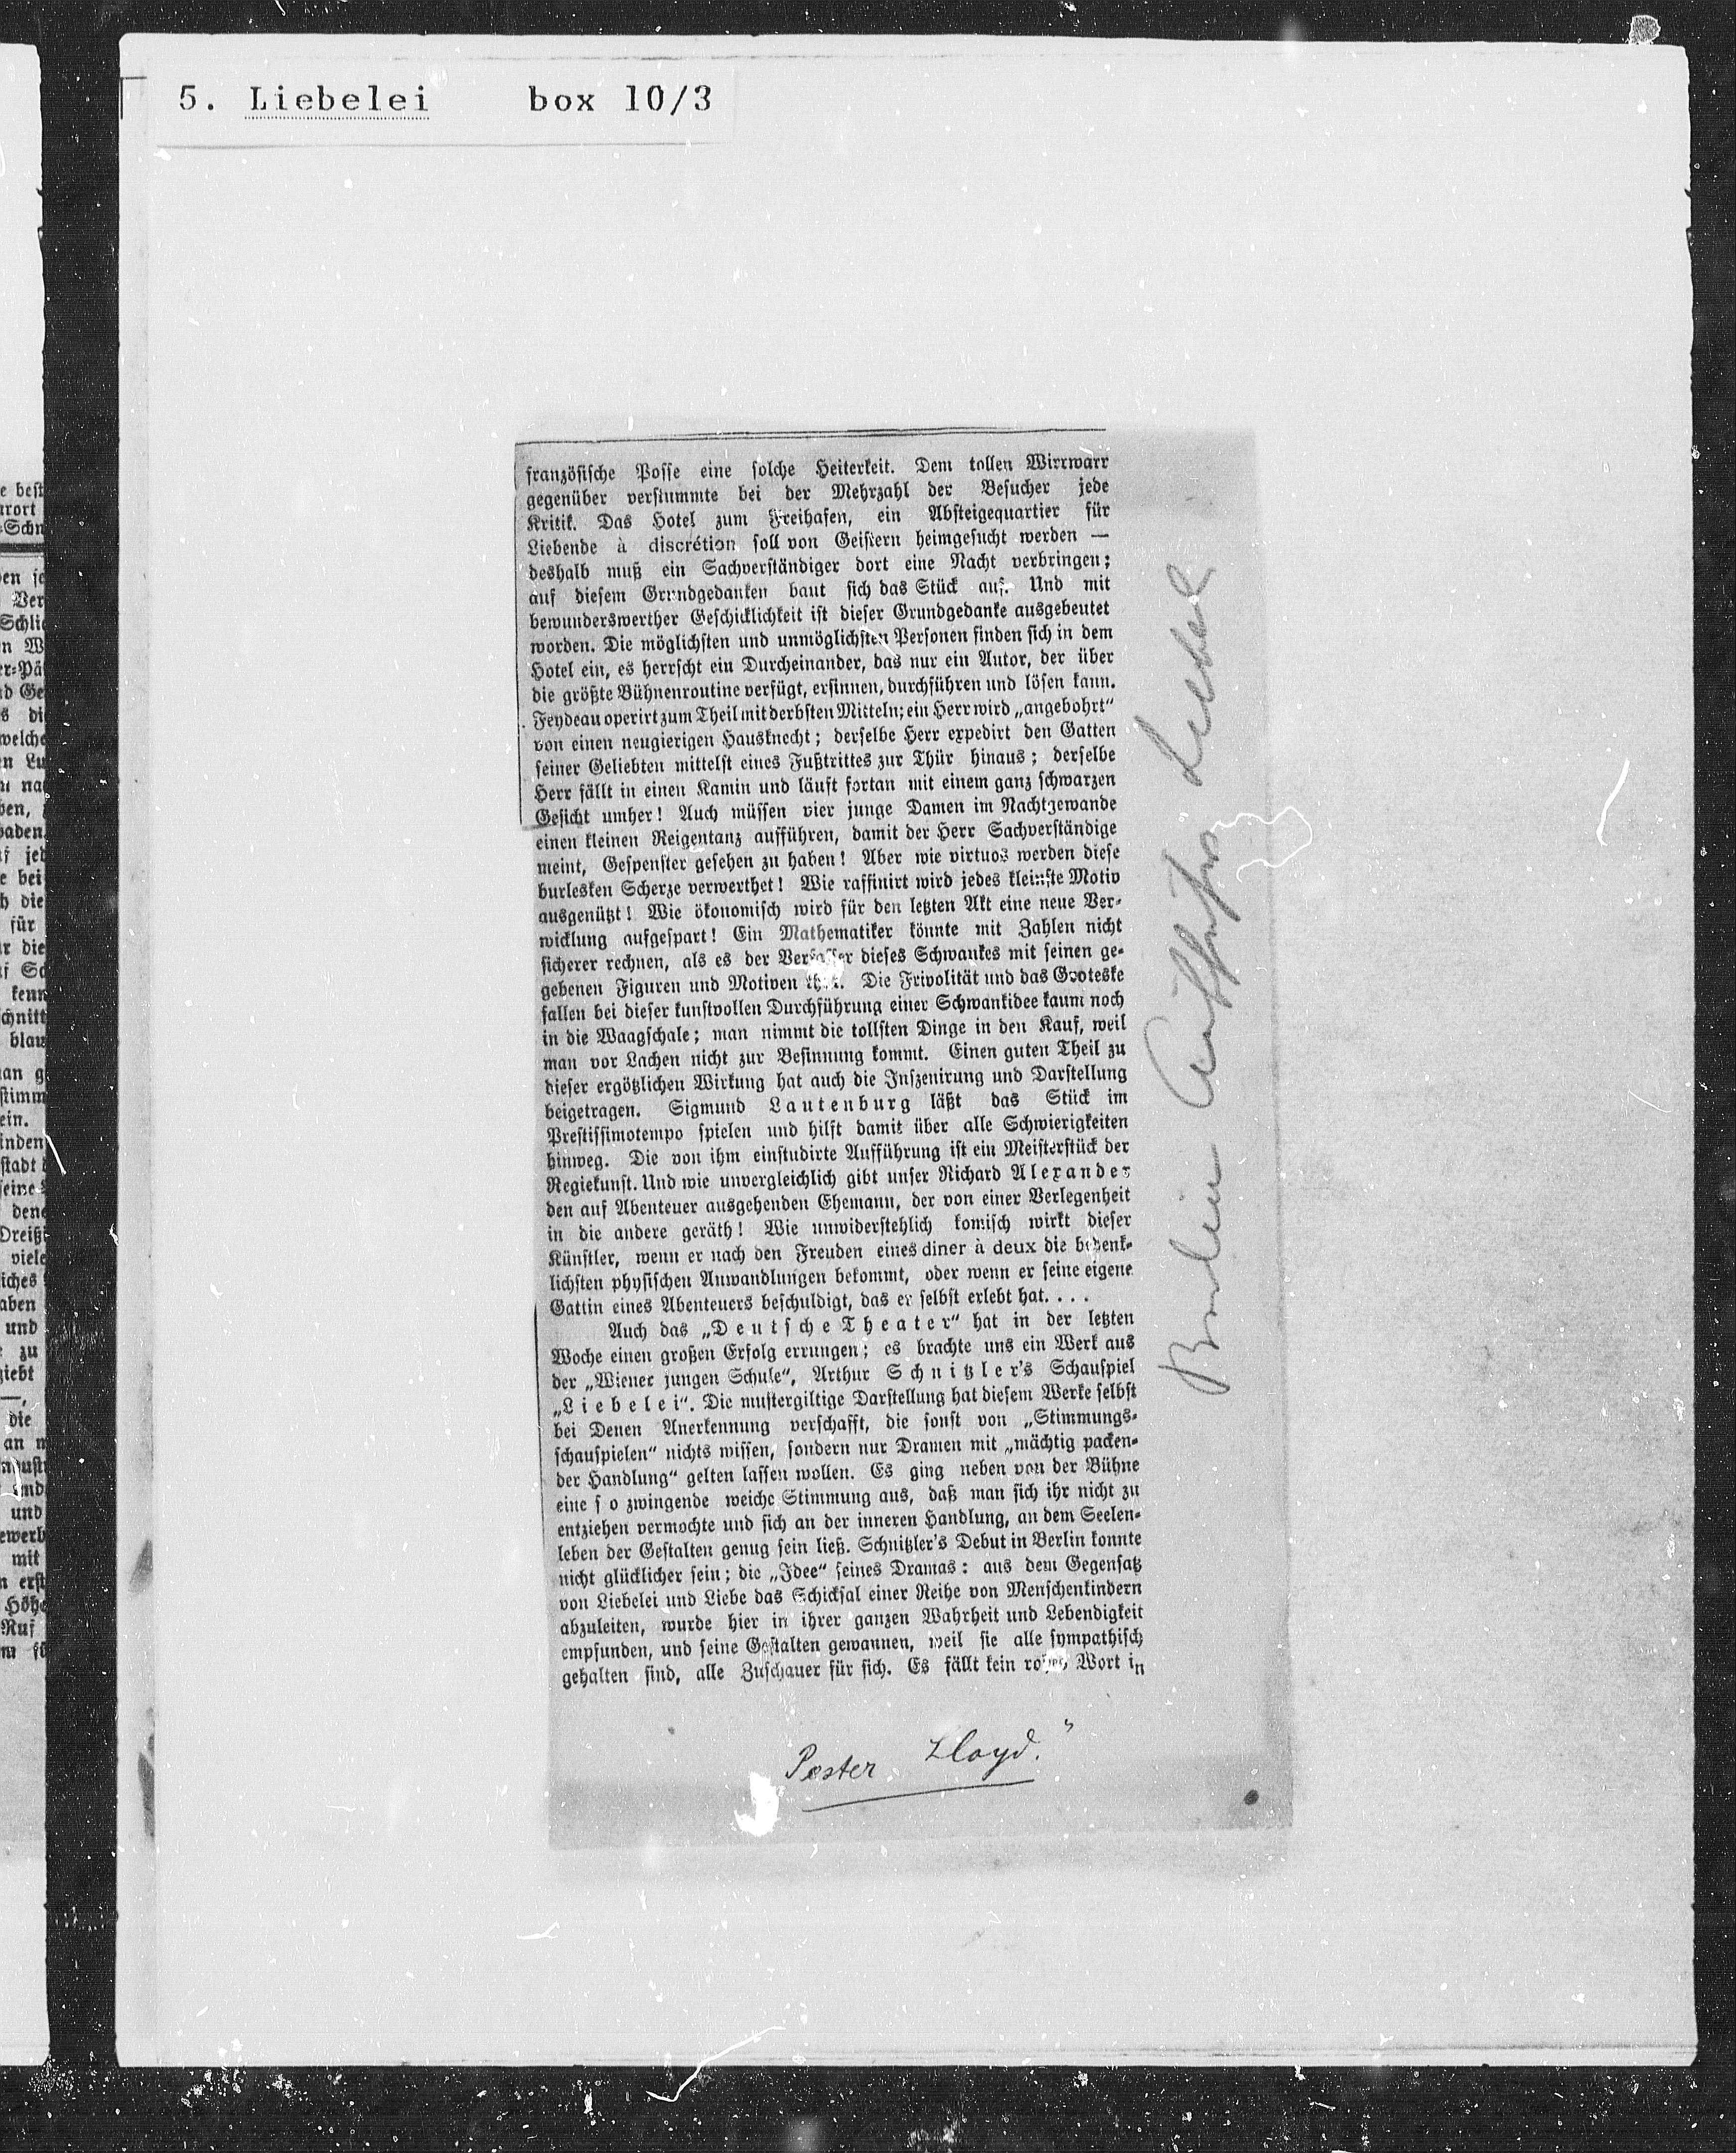 5. Liebelei box 10/3
französische Posse eine solche Heiterkeit. Dem tollen Wirrwarr
gegenüber verstummte bei der Mehrzahl der Besucher jede
Kritik. Das Hotel zum Freihafen, ein Absteigequartier für
Liebende à discrétion soll von Geistern heimgesucht werden —
deshalb muß ein Sachverständiger dort eine Nacht verbringen;
auf diesem Grundgedanken baut sich das Stück auf. Und mit
bewunderswerther Geschicklichkeit ist dieser Grundgedanke ausgebeutet
worden. Die möglichsten und unmöglichsten Personen finden sich in dem
Hotel ein, es herrscht ein Durcheinander, das nur ein Autor, der über
die größte Bühnenroutine verfügt, ersinnen, durchführen und lösen kann.
Feydeau operirt zum Theil mit derbsten Mitteln; ein Herr wird „angebohrt“
von einen neugierigen Hausknecht; derselbe Herr expedirt den Gatten
seiner Geliebten mittelst eines Fußtrittes zur Thür hinaus; derselbe
Herr fällt in einen Kamin und läuft fortan mit einem ganz schwarzen
Gesicht umher! Auch müssen vier junge Damen im Nachtgewande
einen kleinen Reigentanz aufführen, damit der Herr Sachverständige
meint, Gespenster gesehen zu haben! Aber wie virtuos werden diese
burlesken Scherze verwerthet! Wie raffinirt wird jedes kleinste Motiv
ausgenützt! Wie ökonomisch wird für den letzten Akt eine neue Ver-
wicklung aufgespart! Ein Mathematiker könnte mit Zahlen nicht
sicherer rechnen, als es der Verfasser dieses Schwankes mit seinen ge-
gebenen Figuren und Motiven thut. Die Frivolität und das Groteske
fallen bei dieser kunstvollen Durchführung einer Schwankidee kaum noch
in die Waagschale; man nimmt die tollsten Dinge in den Kauf, weil
man vor Lachen nicht zur Besinnung kommt. Einen guten Theil zu
dieser ergötzlichen Wirkung hat auch die Inszenirung und Darstellung
beigetragen. Sigmund Lautenburg läßt das Stück im
Prestissimotempo spielen und hilft damit über alle Schwierigkeiten
hinweg. Die von ihm einstudirte Aufführung ist ein Meisterstück der
Regiekunst. Und wie unvergleichlich gibt unser Richard Alexander
den auf Abenteuer ausgehenden Ehemann, der von einer Verlegenheit
in die andere geräth! Wie unwiderstehlich komisch wirkt dieser
Künstler, wenn er nach den Freuden eines diner à deux die bedenk-
lichsten physischen Anwandlungen bekommt, oder wenn er seine eigene
Gattin eines Abenteuers beschuldigt, das er selbst erlebt hat. . . .
Auch das „Deutsche Theater“ hat in der letzten
Woche einen großen Erfolg errungen; es brachte uns ein Werk aus
der „Wiener jungen Schule“, Arthur Schnitzler's Schauspiel
„Liebelei“. Die mustergiltige Darstellung hat diesem Werke selbst
bei Denen Anerkennung verschafft, die sonst von „Stimmungs-
schauspielen“ nichts wissen, sondern nur Dramen mit „mächtig packen-
der Handlung“ gelten lassen wollen. Es ging neben von der Bühne
eine so zwingende weiche Stimmung aus, daß man sich ihr nicht zu
entziehen vermochte und sich an der inneren Handlung, an dem Seelen-
leben der Gestalten genug sein ließ. Schnitzler's Debut in Berlin konnte
nicht glücklicher sein; die „Idee“ seines Dramas: aus dem Gegensatz
von Liebelei und Liebe das Schicksal einer Reihe von Menschenkindern
abzuleiten, wurde hier in ihrer ganzen Wahrheit und Lebendigkeit
empfunden, und seine Gestalten gewannen, weil sie alle sympathisch
gehalten sind, alle Zuschauer für sich. Es fällt kein rohes Wort in
Pester Lloyd."
Berlin